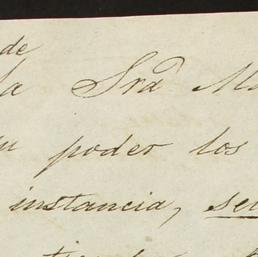 de
la Srã M
su poder los
instancia, se